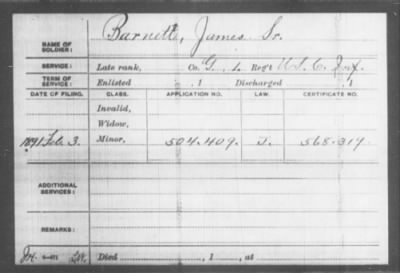 Barnett, James Sr.
NAME OF SOLDIER:
SERVICE: Late rank, Co. G, 1. Reg't U.S.C. Inf.
TERM OF SERVICE: Enlisted , 1 Discharged , 1
DATE OF FILING. CLASS. APPLICATION NO. LAW. CERTIFICATE NO.
Invalid,
Widow,
1891 Feb. 3. Minor, 504.409. J. 568.317.
ADDITIONAL SERVICES:
REMARKS:
Died , 1 , at